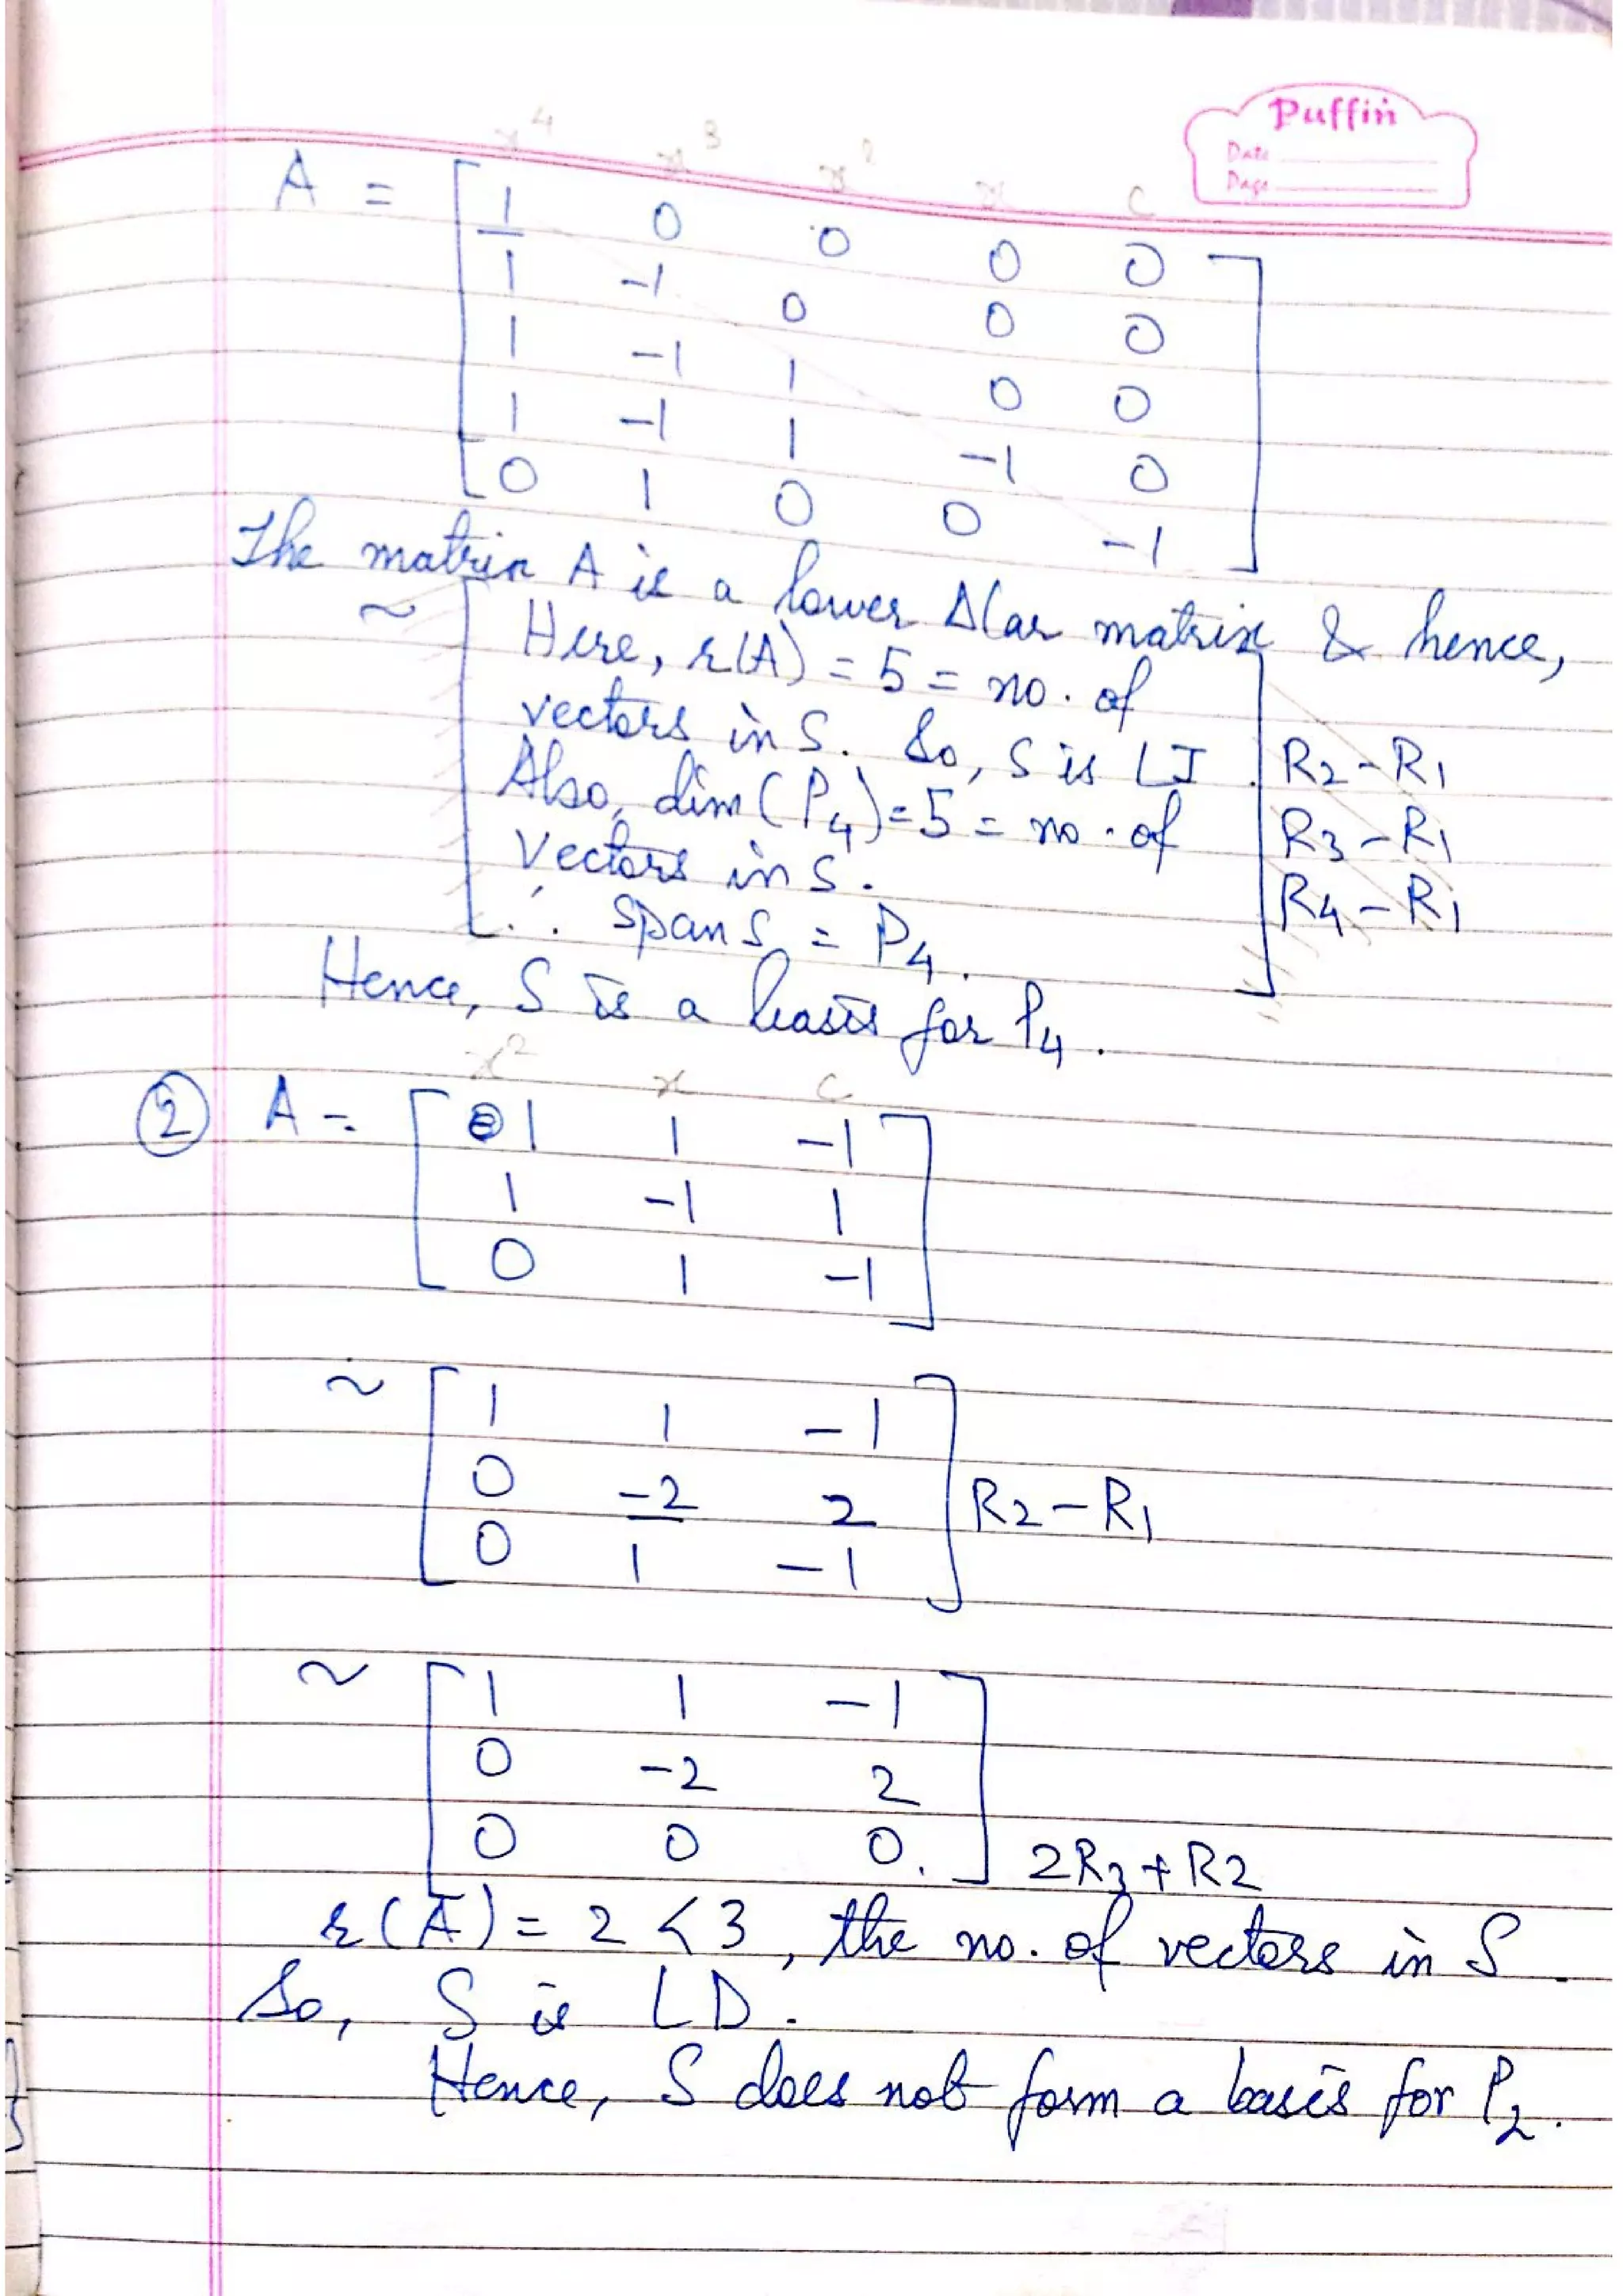 Puffin
Date
Page
x⁴ x³ x² x c
A = [ 1 0 0 0 0
1 -1 0 0 0
1 -1 1 0 0
1 -1 1 -1 0
0 1 0 0 -1 ]
The matrix A is a lower Δlar matrix & hence,
~ [ Here, r(A) = 5 = no. of
vectors in S. So, S is LI. ] R2-R1
Also, dim(P4)=5 = no. of R3-R1
vectors in S. R4-R1
∴ span S = P4.
Hence, S is a basis for P4.
x² x c
② A = [ 1 1 -1
1 -1 1
0 1 -1 ]
~ [ 1 1 -1
0 -2 2 ] R2-R1
0 1 -1
~ [ 1 1 -1
0 -2 2
0 0 0. ] 2R3+R2
r(A) = 2 < 3, the no. of vectors in S.
So, S is LD.
Hence, S does not form a basis for P2.